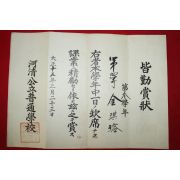 皆勤賞狀
第参學年
金洪培
右者本學年中一日ノ欠席ナク
課業ニ精勤ス依テ茲ニ之ヲ賞ス
大正十五年三月二十三日
河淸公立普通學校